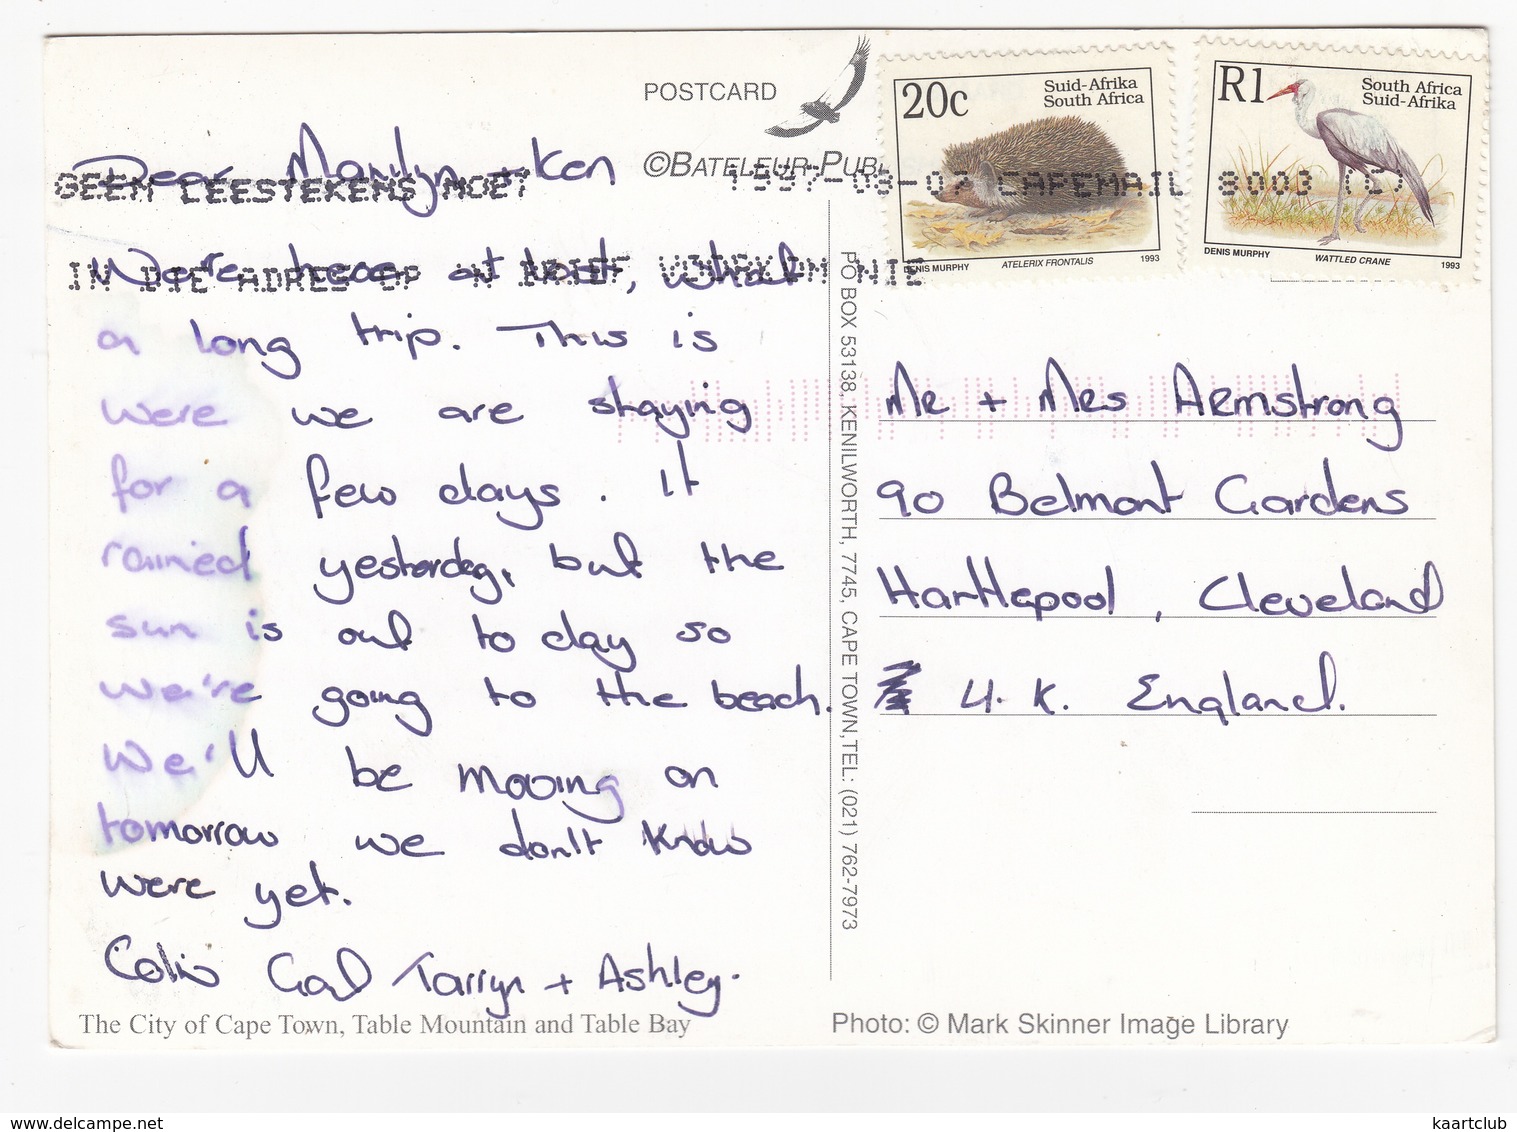 POSTCARD
©BATELEUR PUBL
20c
Suid-Afrika
South Africa
DENIS MURPHY
ATELERIX FRONTALIS
1993
R1
South Africa
Suid-Afrika
DENIS MURPHY
WATTLED CRANE
1993
GEEN LEESTEKENS MOET
IN DIE ADRES OP 'N BRIEF VOORKOM NIE
CAPEMAIL 8000 (C)
Dear Marilyn + Ken
We're here at last, what
a long trip. This is
were we are staying
for a few days. It
rained yesterday, but the
sun is out to day so
we're going to the beach.
We'll be moving on
tomorrow we don't know
were yet.
Colin Gail Tarryn + Ashley.
PO BOX 53138, KENILWORTH, 7745, CAPE TOWN, TEL: (021) 762-7973
Mr + Mrs Armstrong
90 Belmont Gardens
Hartlepool, Cleveland
U.K. England.
The City of Cape Town, Table Mountain and Table Bay
Photo: © Mark Skinner Image Library
delcampe.net
kaartclub